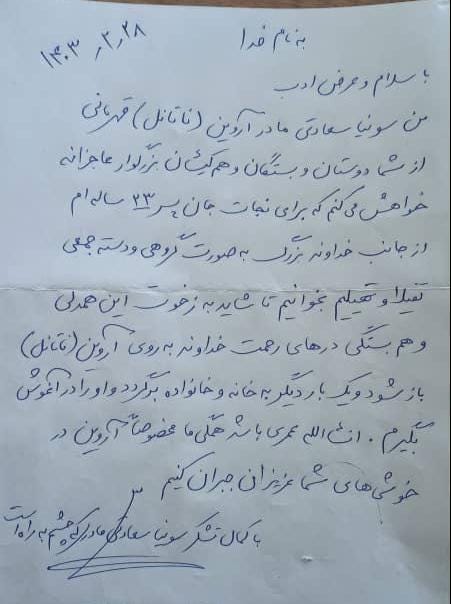 به نام خدا
۱۴۰۳٫۲٫۲۸
با سلام و عرض ادب
من سونیا سعادتی مادر آروین (ناتانل) قهرمانی
از شما دوستان و بستگان و هم‌کیشان بزرگوار عاجزانه
خواهش می‌کنم که برای نجات جان پسر ۲۳ ساله ام
از جانب خداوند بزرگ به صورت گروهی و دسته جمعی
تفیلا و تهیلیم بخوانیم تا شاید به زخوت این همدلی
و هم بستگی درهای رحمت خداوند به روی آروین (ناتانل)
باز شود و یک بار دیگر به خانه و خانواده برگردد و او را در آغوش
بگیرم. انشاالله عمری باشد همگی ما مخصوصاً آروین در
خوشی‌های شما عزیزان جبران کنیم
با کمال تشکر سونیا سعادتی مادری که چشم به راه است